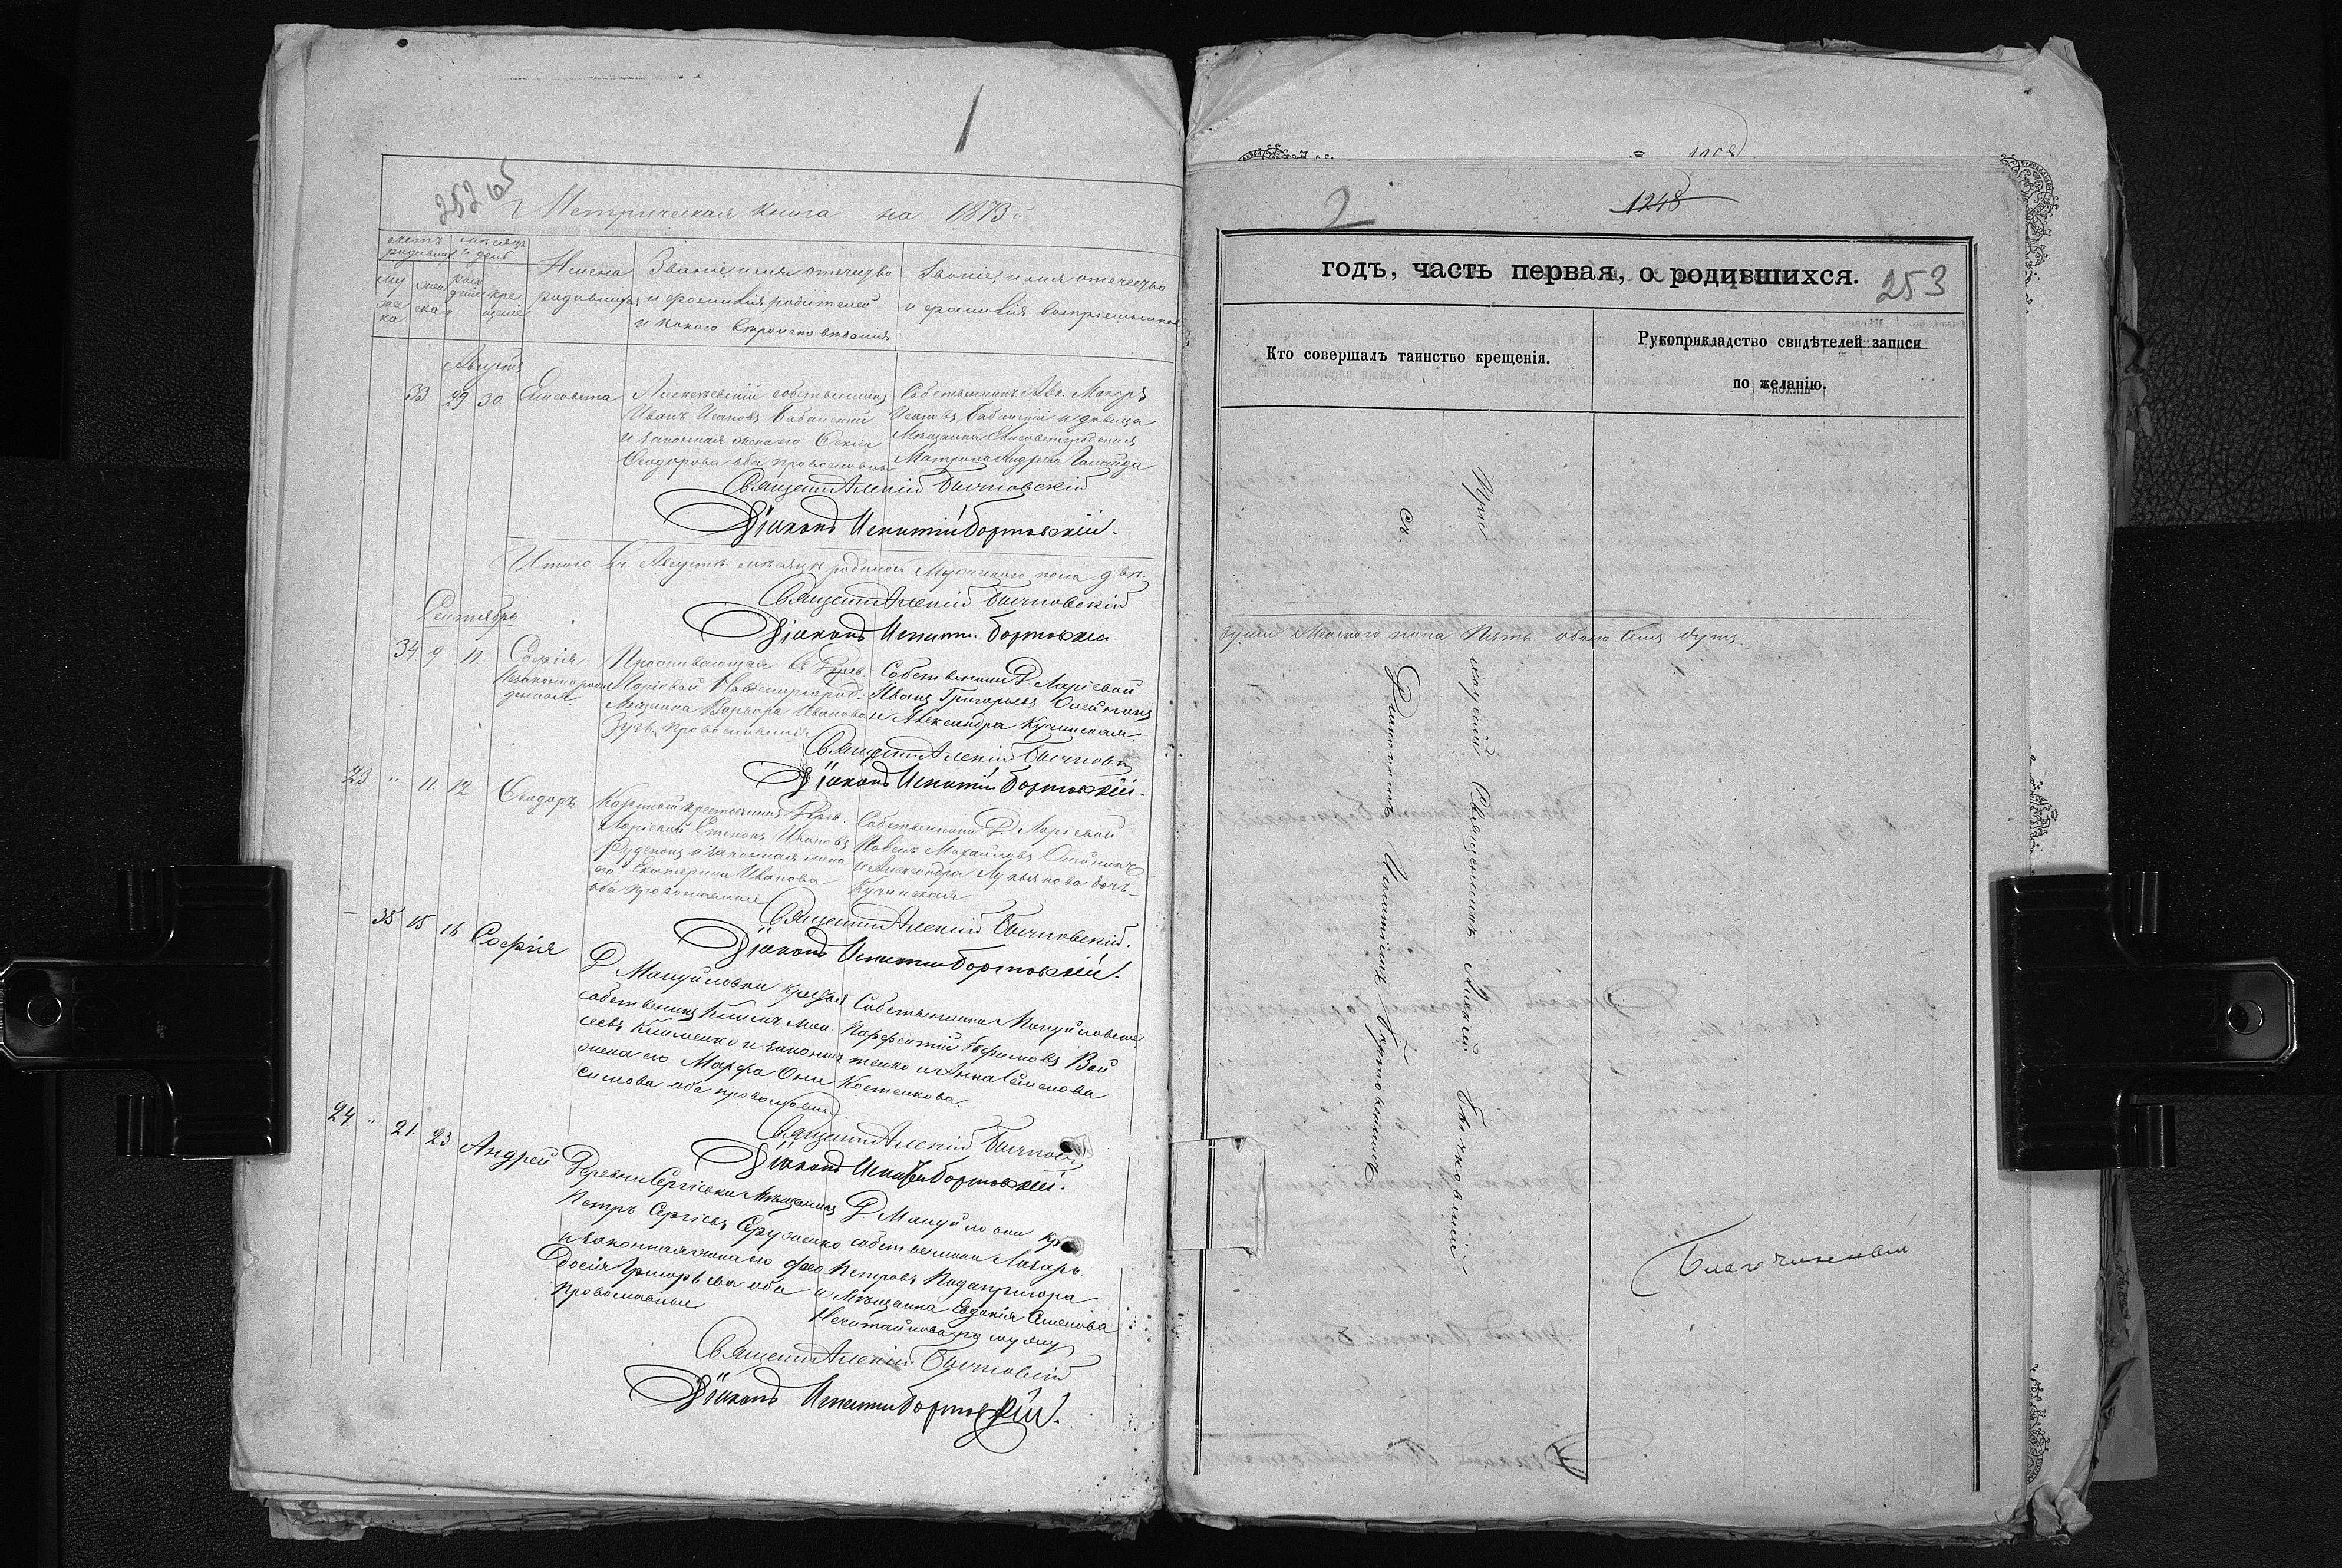 1
252 об
Метрическая книга на 1873й
счетъ родивших. месяцъ и день
му жес ка
жен ска
рож дені
кре щеніе
Имена родившихся
Званіе, имя отечество и фамилія родителей и какого вѣроисповѣданія
Званіе, имя отечество и фамилія воспріемниковъ
Августъ
33 29 30. Елисавета
Алексѣевскій собственникъ
Иванъ Исаковъ Бабанскій
и законная жена его
Ѳеодорова оба православные
Собственникъ Макаръ
Исаковъ Бабанскій и дѣвица
Мѣщанка Елисаветградская
Матрона Андреева
Священ. Алексій Бычковскій
Діаконъ Игнатій Бортовскій.
Итого въ Августѣ мѣсяцѣ родилось Мужскаго пола двѣ
Священ. Алексій Бычковскій
Діаконъ Игнатій Бортовскій
Сентябрь
34. 9 11. Софія
Незаконнорожденная
Проживающая въ Дерев.
Ларіевой Новомиргород.
Мѣщанка Варвара Иванова
Зузь, православная
Собственники Д. Ларіевой
Иванъ Григорьевъ Олейникъ
и Александра Кучинская.
Священ. Алексій Бычковск
Діаконъ Игнатій Бортовскій.
23 " 11. 12 Ѳеодоръ
крестьянинъ Дерев.
Ларіевой Степанъ Ивановъ
Руденко и законная жена
его Екатерина Иванова
оба православные
Собственники Д. Ларіевой
Павелъ Михайловъ Олейникъ
и Александра Лукьянова дочь
Кучинская
Священ. Алексій Бычковскій.
Діаконъ Игнатій Бортовскій.
— 35 15 16 Софія
Д. Мануйловки крестья
собственникъ Климъ Мои
сеевъ Клименко и законная
жена его Марфа Они
симова оба православные
Собственники Мануйловские
Парфентій Ефимовъ Вой
тенко и Анна Семенова
Костенкова.
Священ. Алексій Бычковск
Діаконъ Игнатій Бортовскій.
24. " 21. 23 Андрей
Деревни Сергіевки Мѣщанинъ
Петръ Сергіевъ
и законная жена его Ѳео
досія Григорьева оба
Православные
Д. Мануйловки кр
собственники Лазарь
Петровъ Подопригора
и Мѣщанка Евдокія Семенова
Нечитайлова по мужу
Священ. Алексій Бычковскій
Діаконъ Игнатій Бортовскій.
2
1248
годъ, часть первая, о родившихся.
253
Кто совершалъ таинство крещенія.
Рукоприкладство свидѣтелей записи по желанію.
души Женскаго пола Пять обоего семь душъ.
При
ходскій Священникъ Алексій Бычковскій
съ
Діакономъ Игнатіемъ Бортовскимъ
Благочинный